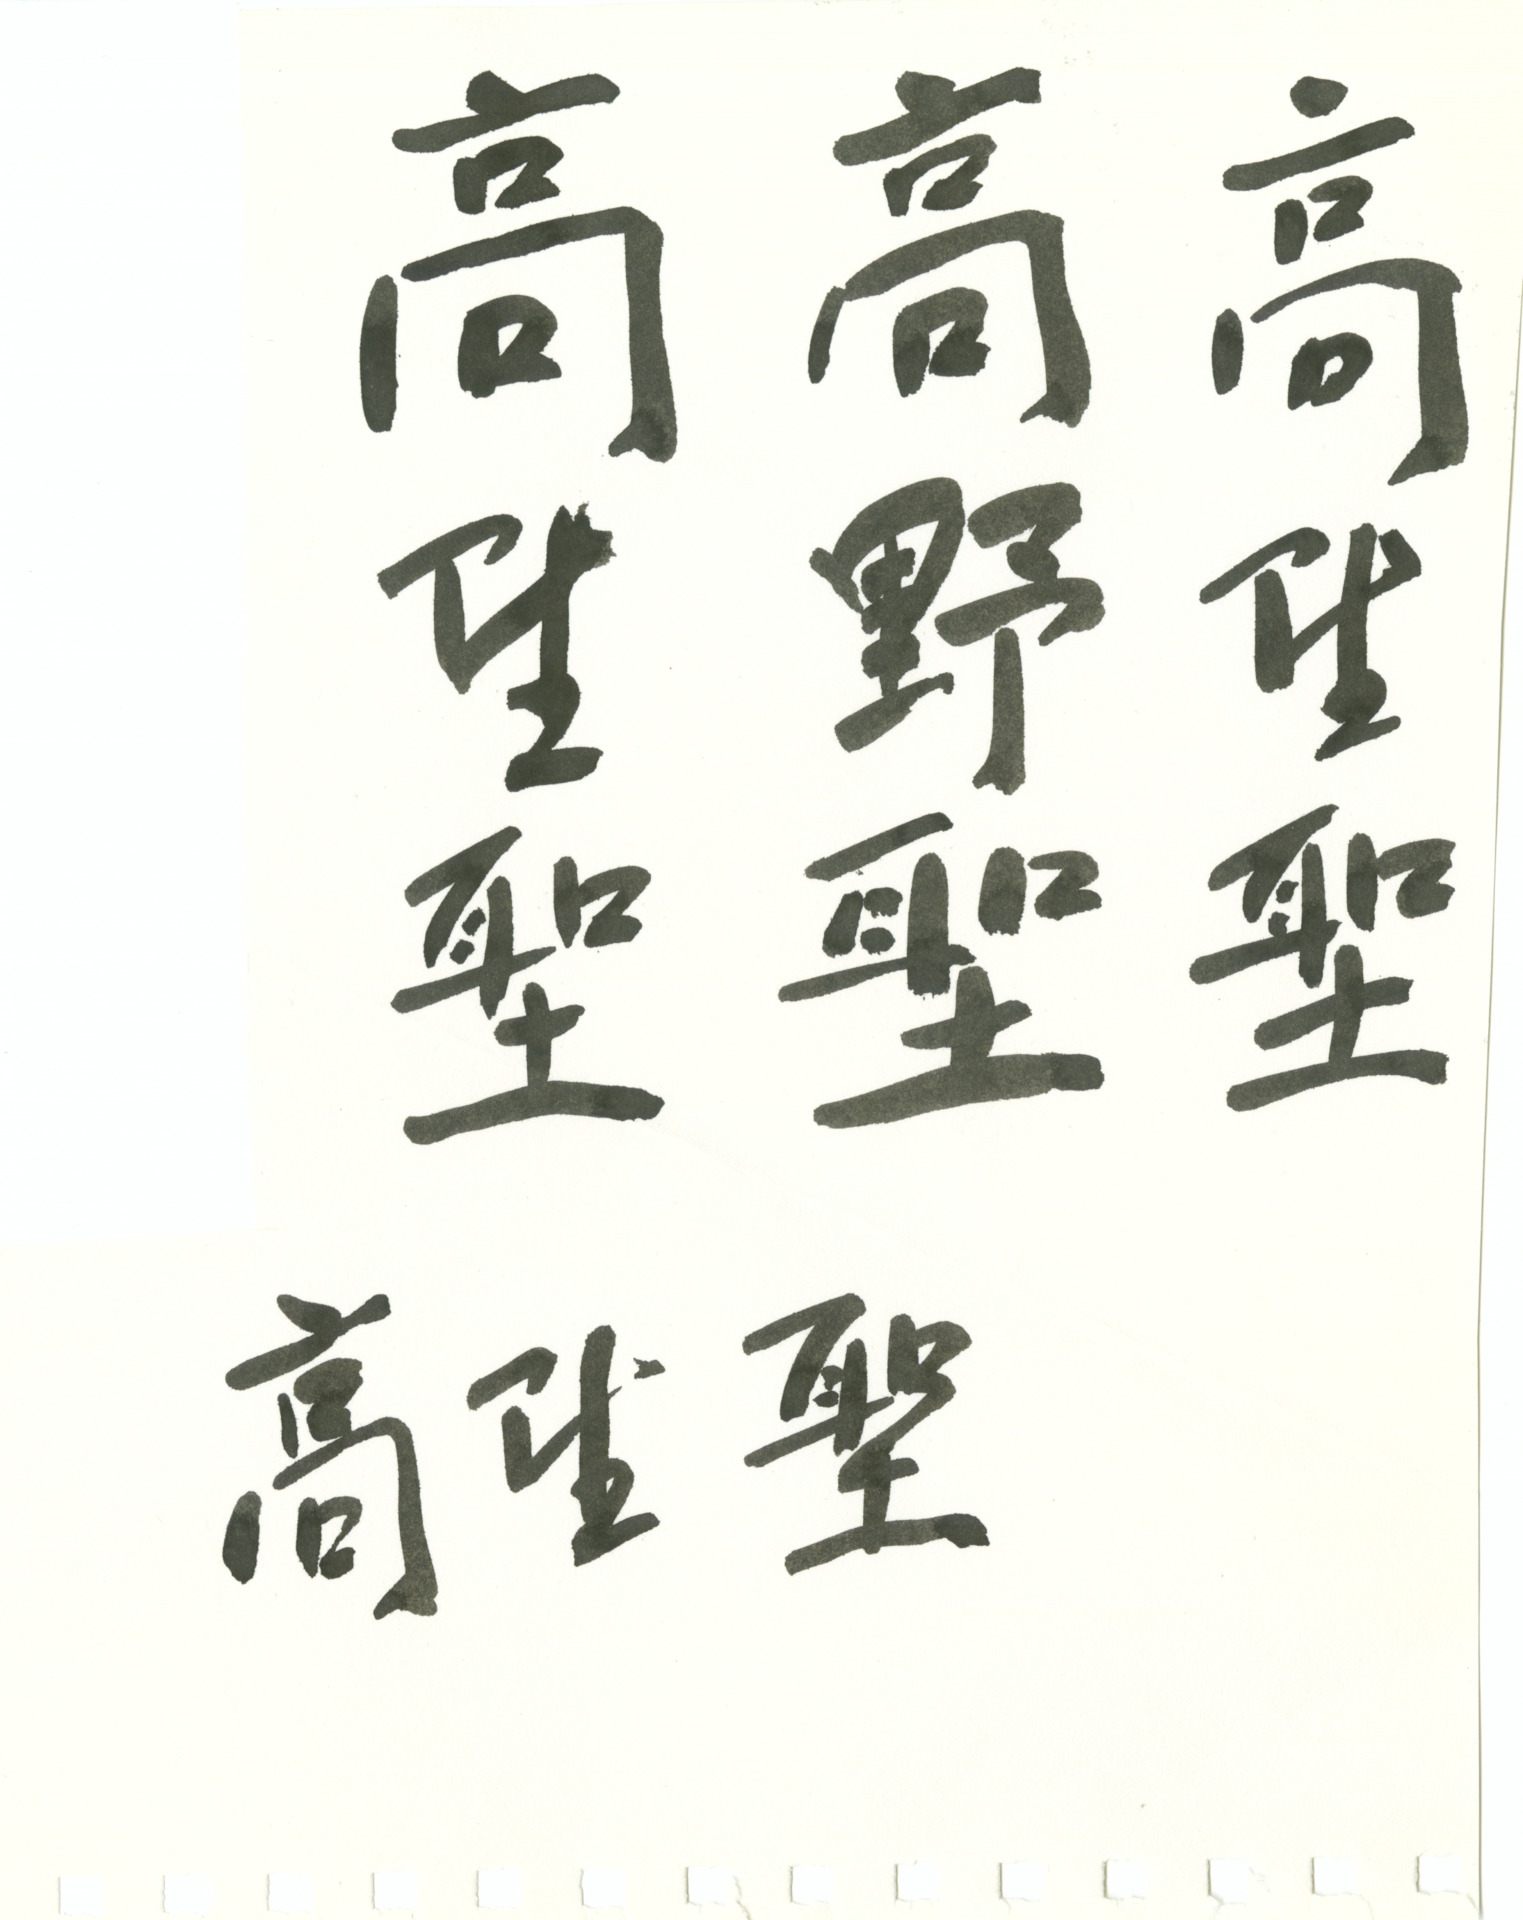 高野聖
高野聖
高野聖
高野聖